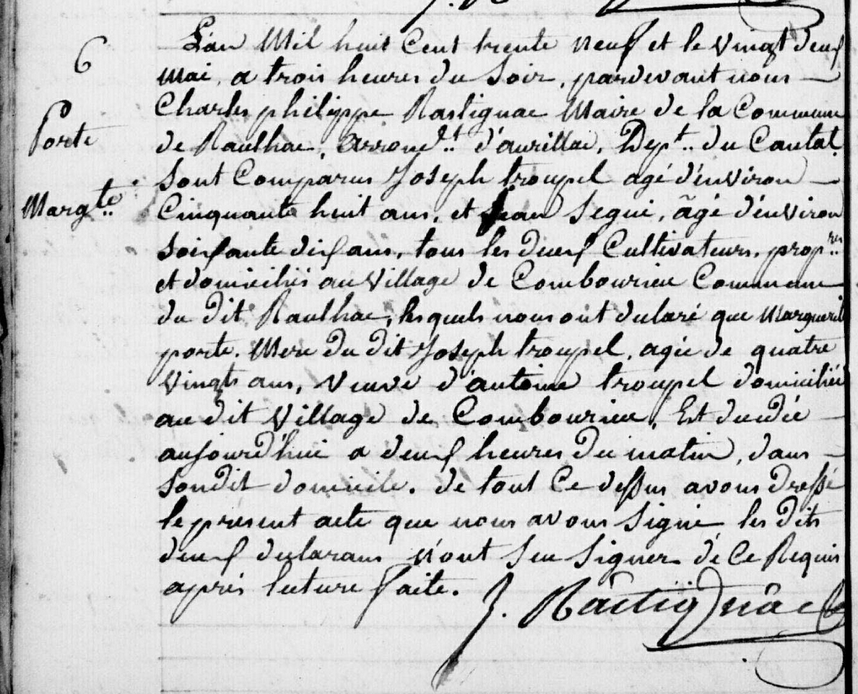 6
Porte
Marg.te
L'an Mil huit Cent trente neuf et le vingt deux
Mai, a trois heures du Soir, pardevant nous —
Charles philippe Rastignac Maire de la Commune
de Raulhac, Arrond.t d'aurillac, Dep.t du Cantal.
Sont Comparus Joseph troupel agé d'énviron —
Cinquante huit ans, et Jean Segui, âgé d'énviron
Soixante dix ans, tous les deux Cultivateurs, prop.res
et domiciliés au Village de Combourieu Commune
du dit Raulhac, lesquels nous ont déclaré que Marguerite
porte, Mere du dit Joseph troupel, agée de quatre
Vingts ans, Veuve d'antoine troupel domiciliée
au dit Village de Combourieu, Est decédée —
aujourd'hui a deux heures du matin, dans —
Sondit domicile. de tout Ce dessus avons Dressé
le present acte que nous avons Signé les dits
deux declarans n'ont Seu Signer de Ce Requis
après lecture faite.
J. Rastignac